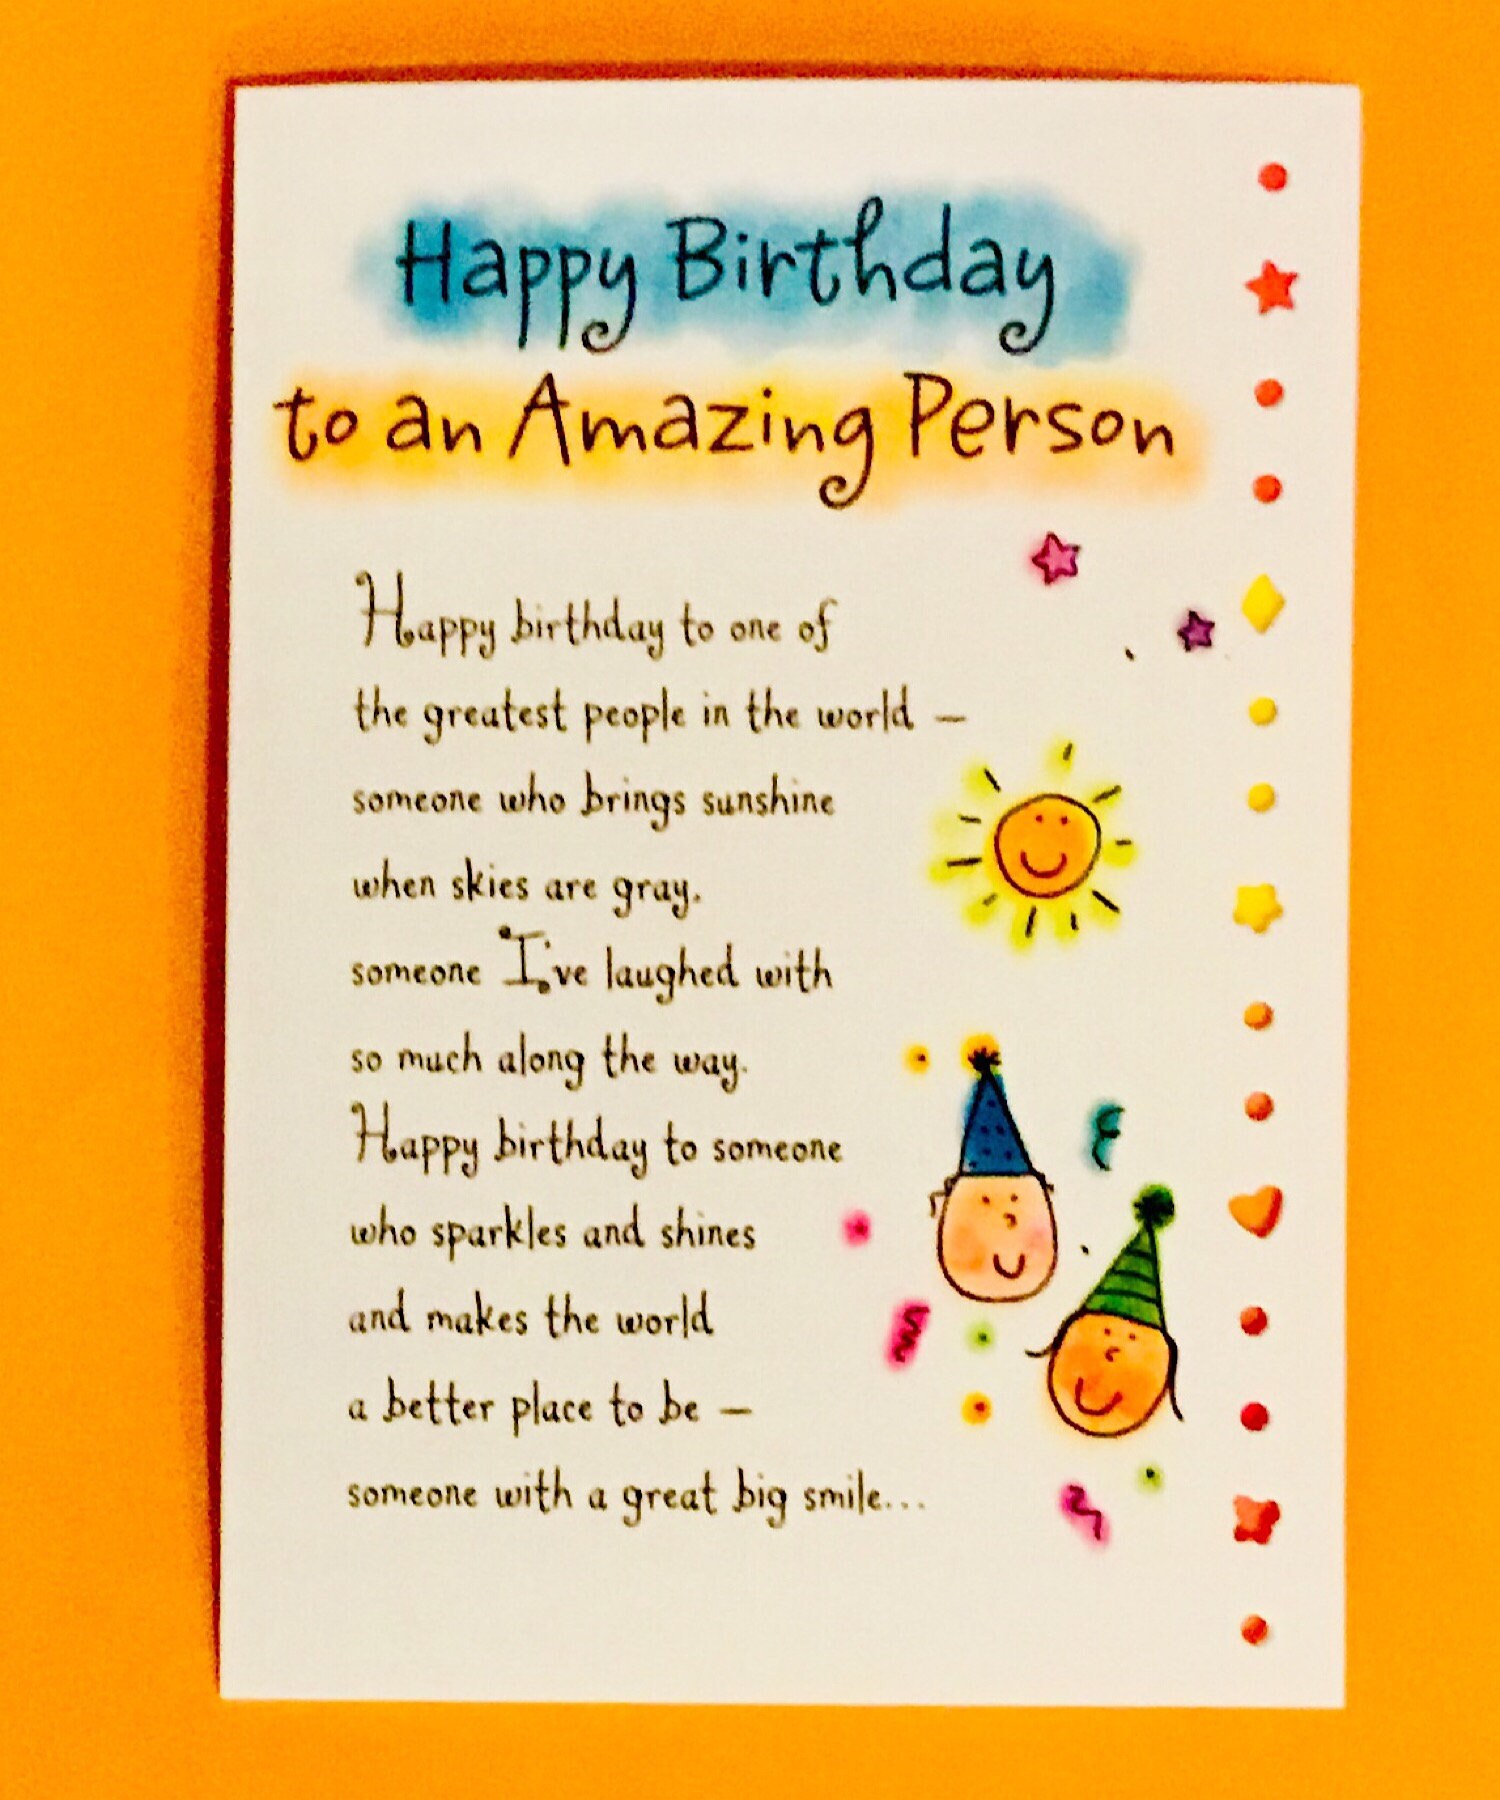 Happy Birthday
to an Amazing Person
Happy birthday to one of
the greatest people in the world —
someone who brings sunshine
when skies are gray.
someone I've laughed with
so much along the way.
Happy birthday to someone
who sparkles and shines
and makes the world
a better place to be —
someone with a great big smile...